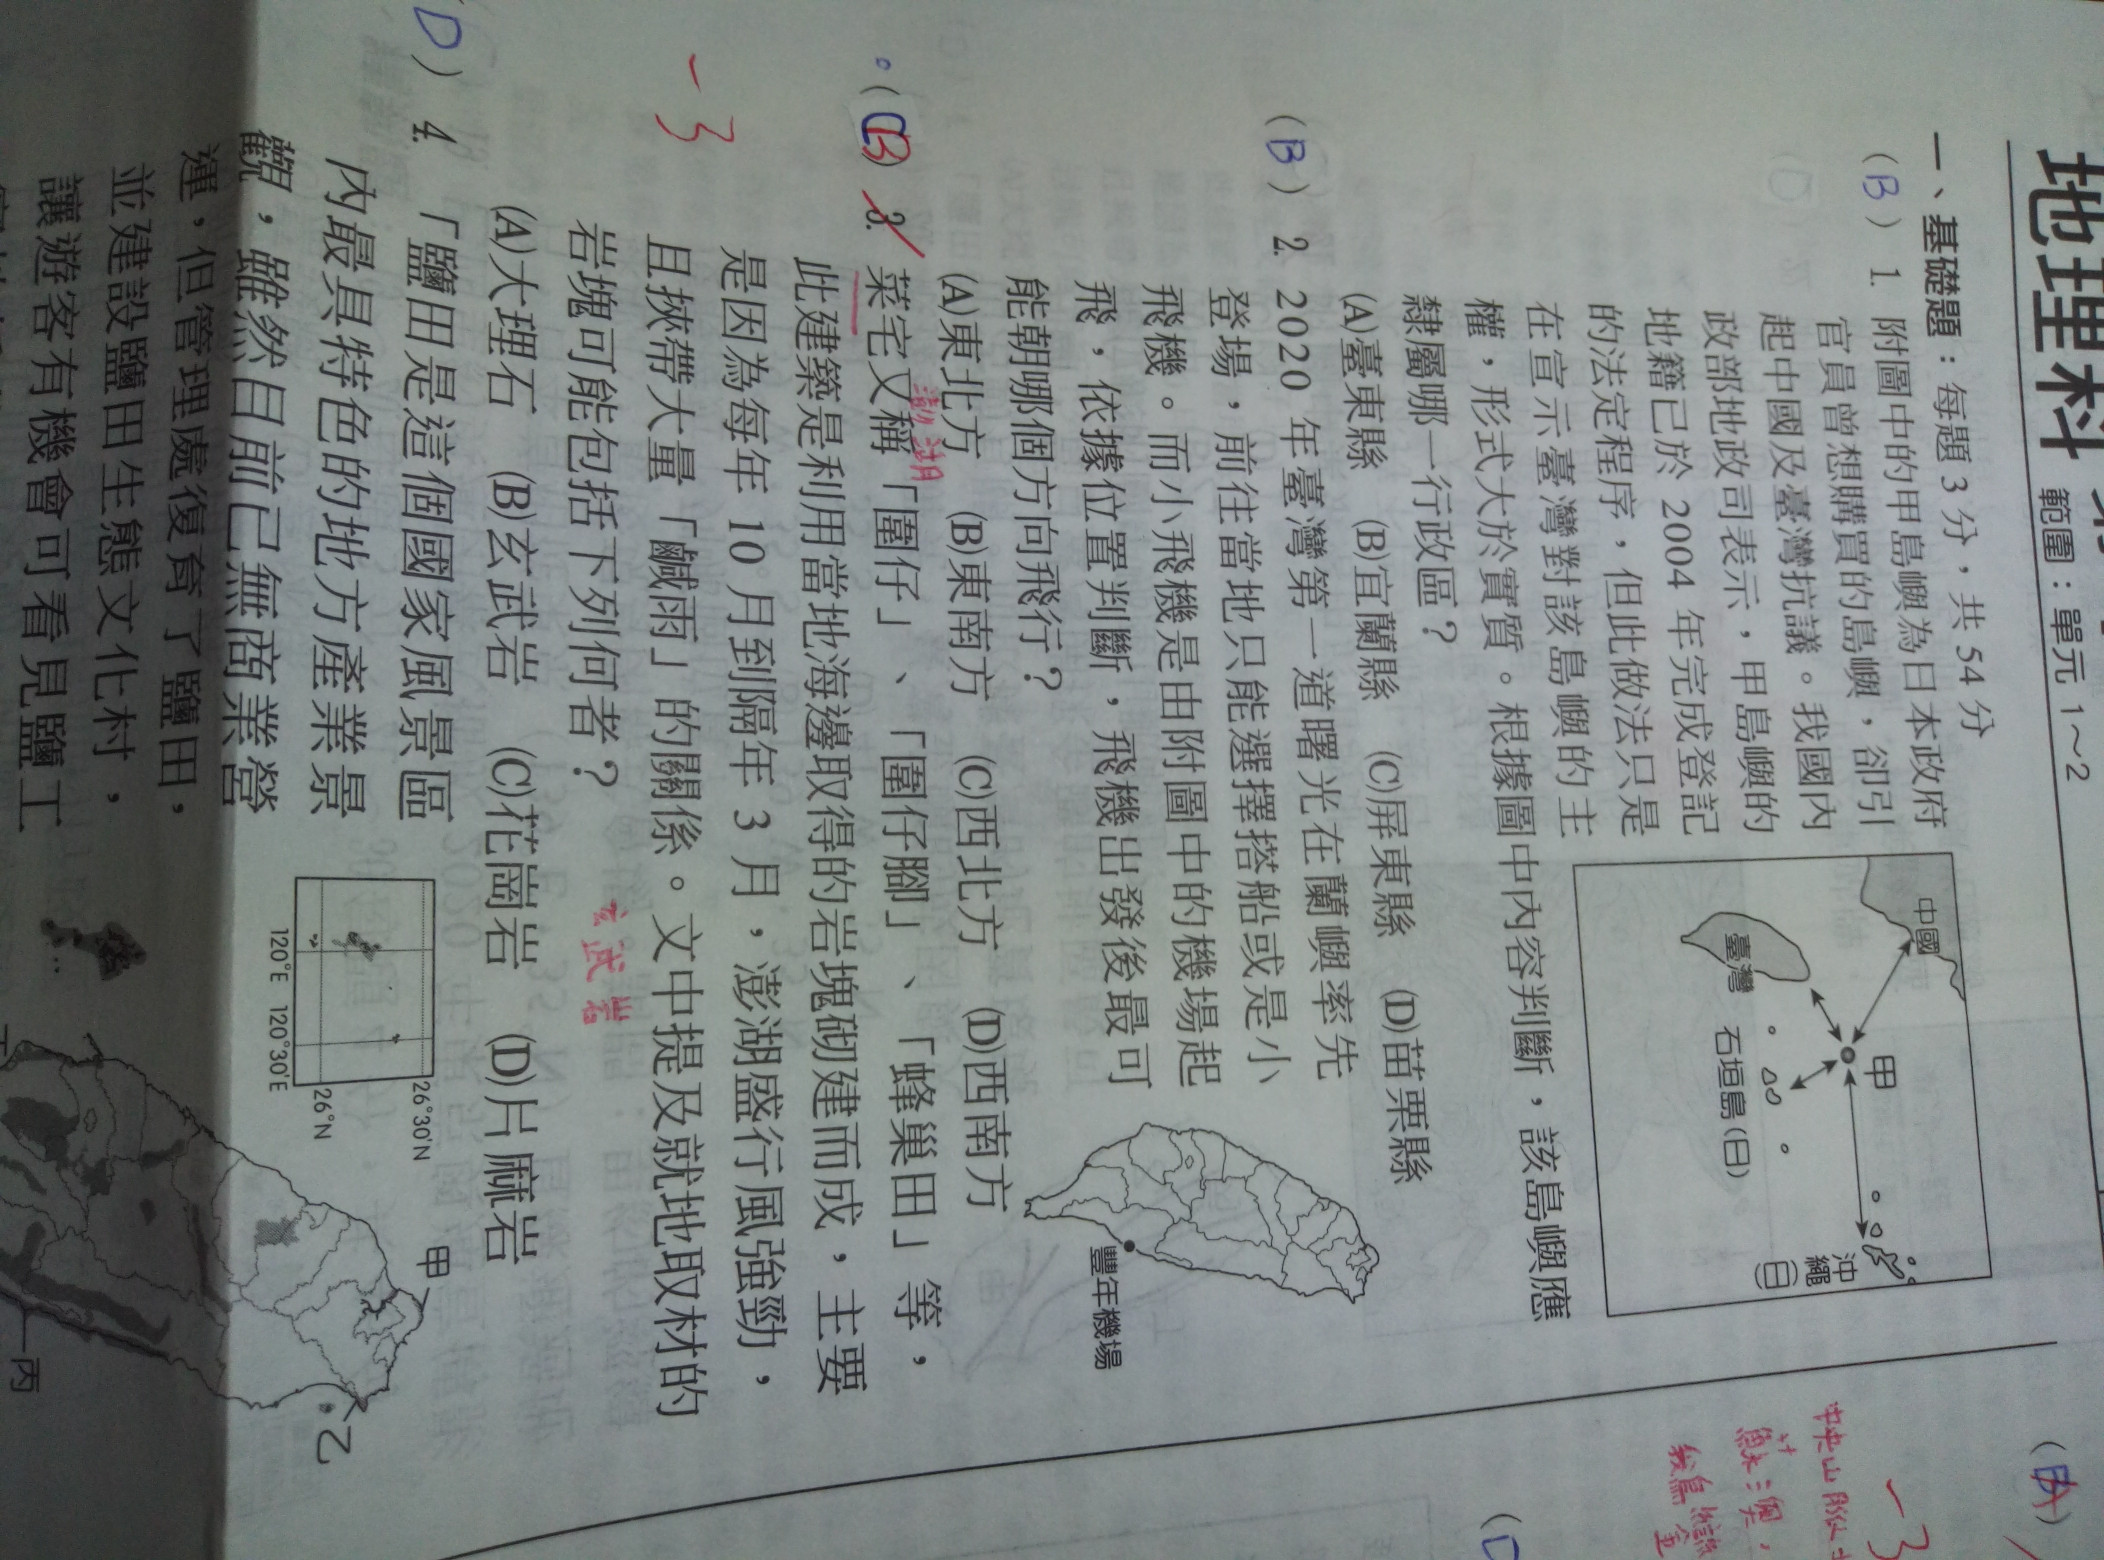 地理科
範圍：單元 1～2
一、基礎題：每題 3 分，共 54 分
(B) 1. 附圖中的甲島嶼為日本政府
官員曾想購買的島嶼，卻引
起中國及臺灣抗議。我國內
政部地政司表示，甲島嶼的
地籍已於 2004 年完成登記
的法定程序，但此做法只是
在宣示臺灣對該島嶼的主
權，形式大於實質。根據圖中內容判斷，該島嶼應
隸屬哪一行政區？
(A)臺東縣 (B)宜蘭縣 (C)屏東縣 (D)苗栗縣
中國
甲
臺灣
石垣島(日)
沖繩(日)
(B) 2. 2020 年臺灣第一道曙光在蘭嶼率先
登場，前往當地只能選擇搭船或是小
飛機。而小飛機是由附圖中的機場起
飛，依據位置判斷，飛機出發後最可
能朝哪個方向飛行？
(A)東北方 (B)東南方 (C)西北方 (D)西南方
豐年機場
(B) 3. 菜宅又稱「圍仔」、「圍仔腳」、「蜂巢田」等，
澎湖
此建築是利用當地海邊取得的岩塊砌建而成，主要
是因為每年 10 月到隔年 3 月，澎湖盛行風強勁，
且挾帶大量「鹹雨」的關係。文中提及就地取材的
岩塊可能包括下列何者？
玄武岩
(A)大理石 (B)玄武岩 (C)花崗岩 (D)片麻岩
-3
(D) 4. 「鹽田是這個國家風景區
內最具特色的地方產業景
觀，雖然目前已無商業營
運，但管理處復育了鹽田，
並建設鹽田生態文化村，
讓遊客有機會可看見鹽工
26°30'N
26°N
120°E 120°30'E
甲
乙
丙
-3
中央山脈